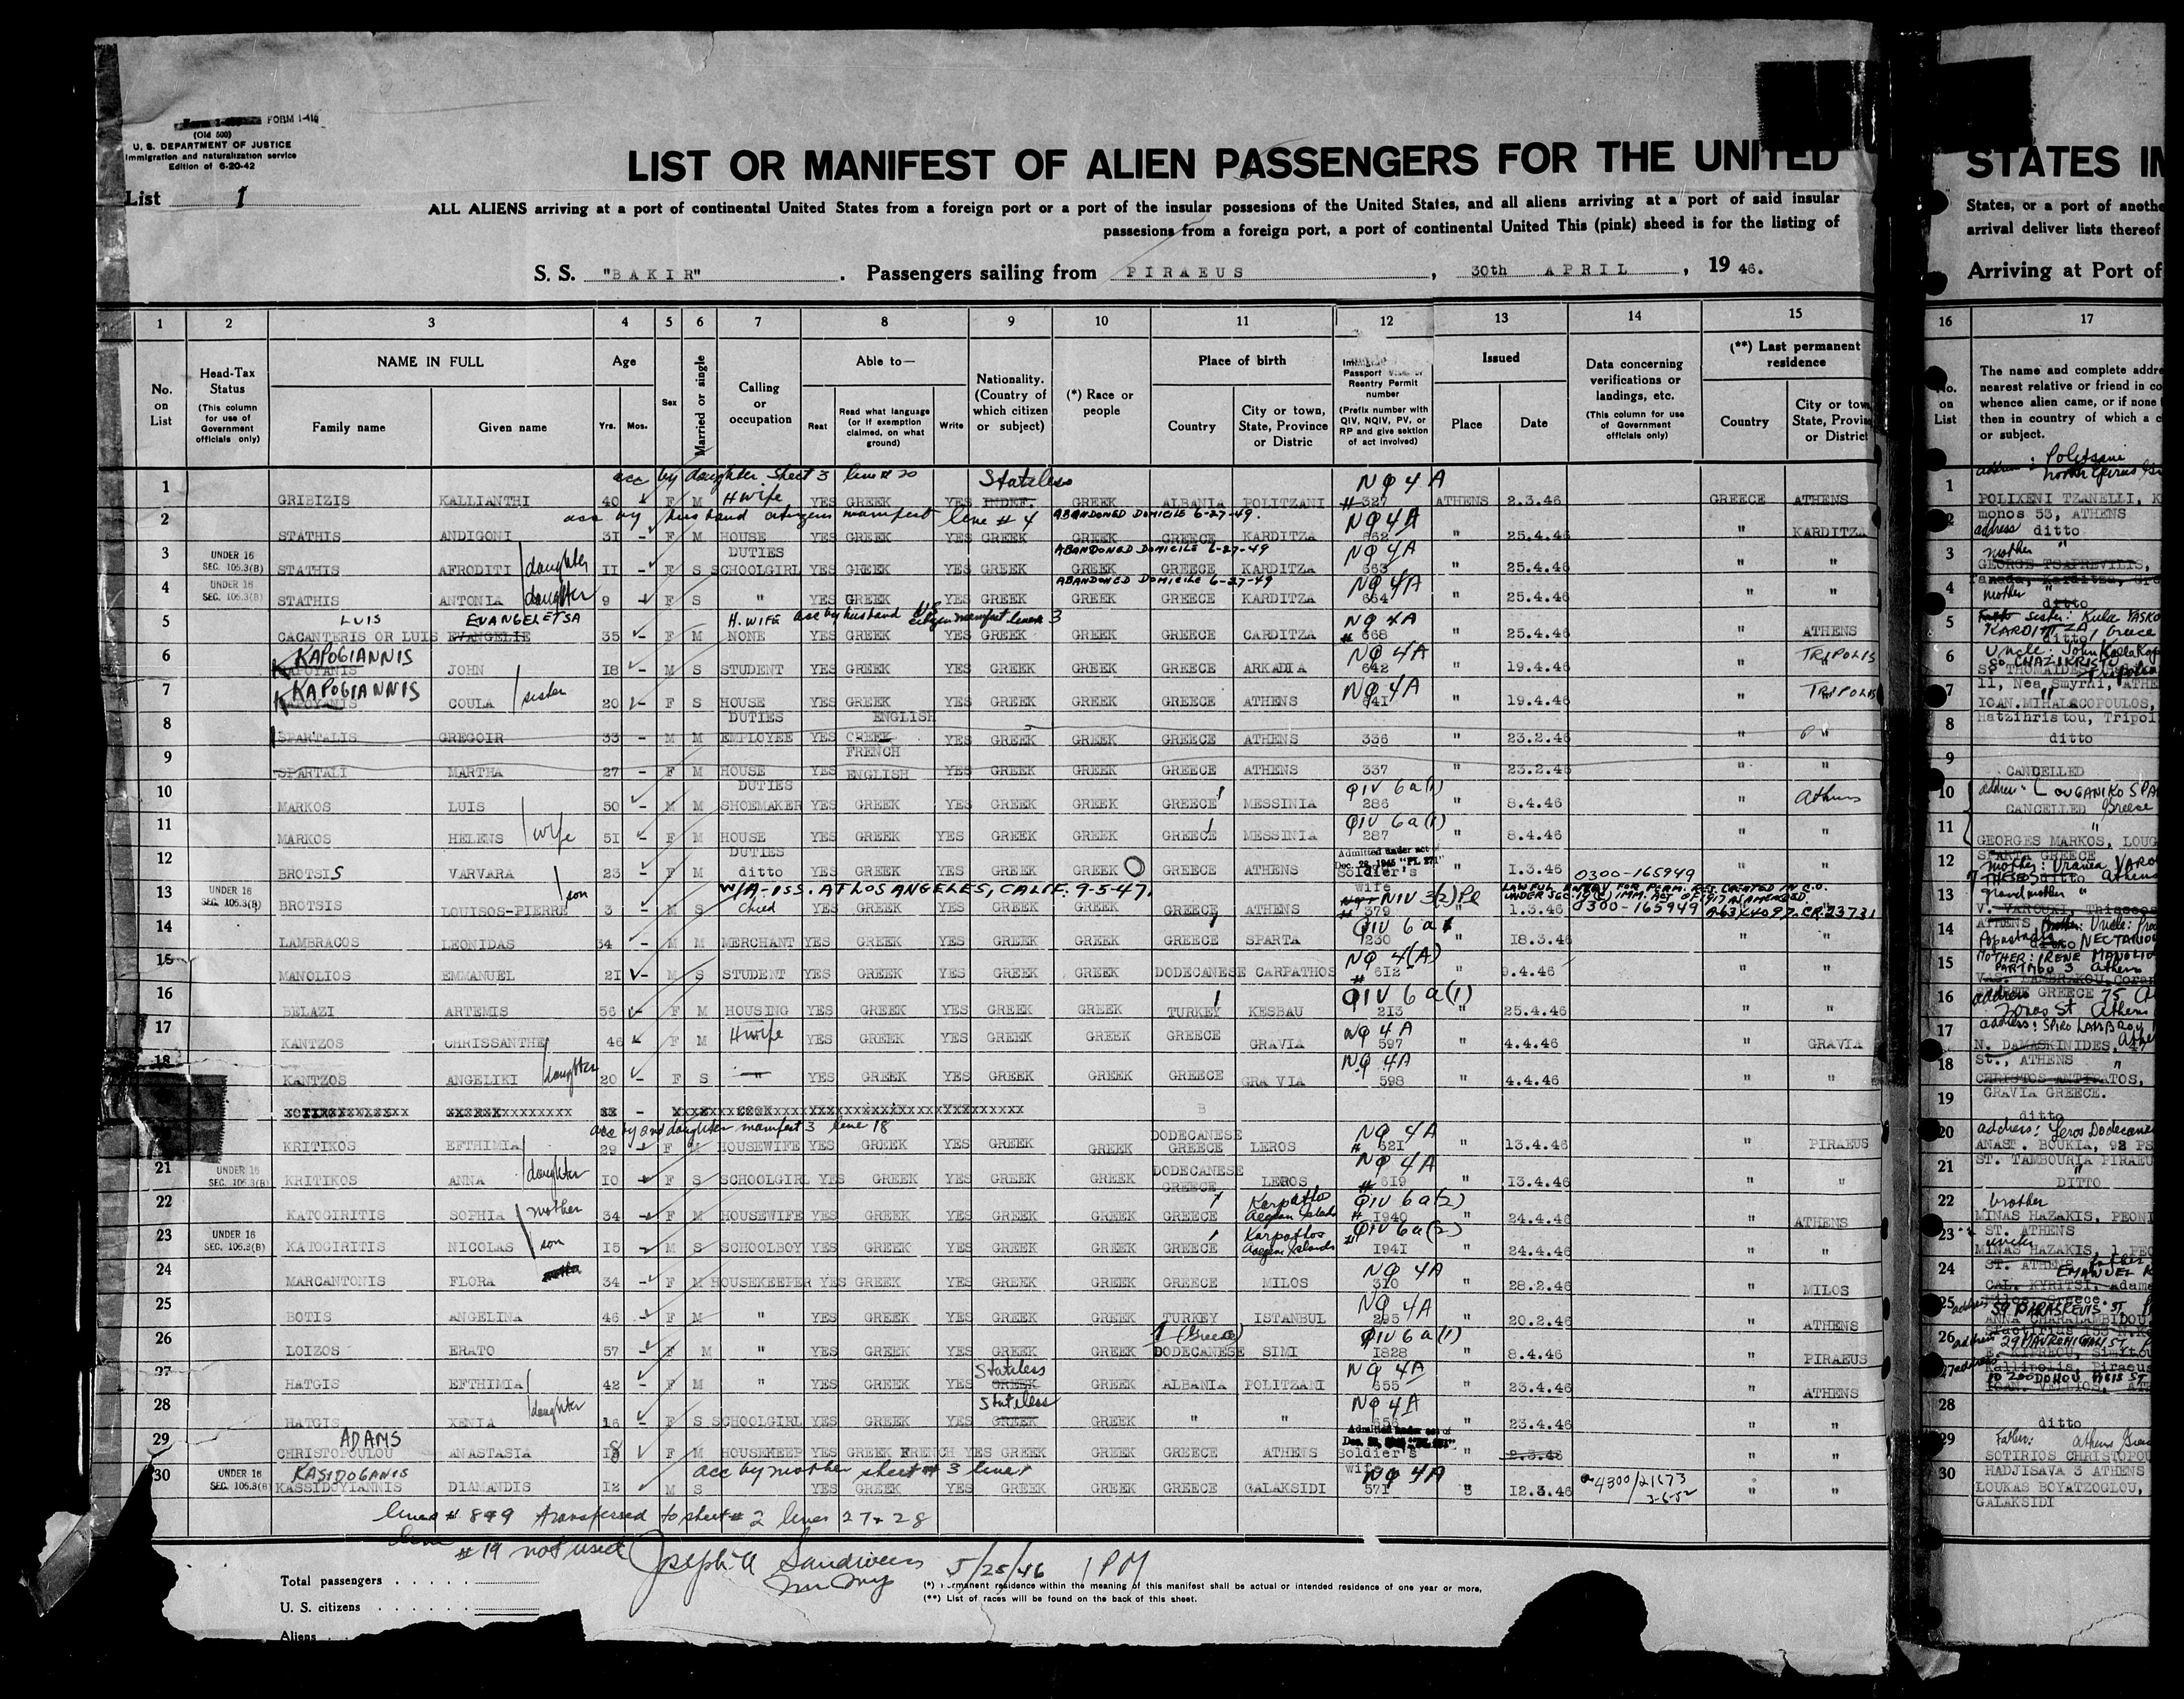 FORM I-416
(Old 500)
U. S. DEPARTMENT OF JUSTICE
Immigration and naturalization service
Edition of 6-20-42
List 1
LIST OR MANIFEST OF ALIEN PASSENGERS FOR THE UNITED
STATES
ALL ALIENS arriving at a port of continental United States from a foreign port or a port of the insular possesions of the United States, and all aliens arriving at a port of said insular
passesions from a foreign port, a port of continental United This (pink) sheed is for the listing of
States, or a port of anothe
arrival deliver lists thereof
S. S. "BAKIR" . Passengers sailing from PIRAEUS , 30th APRIL , 19 46.
Arriving at Port of
1 2 3 4 5 6 7 8 9 10 11 12 13 14 15 16 17
No. on List
Head-Tax Status
(This column for use of Government officials only)
NAME IN FULL
Family name
Given name
Age
Yrs. Mos.
Sex
Married or single
Calling or occupation
Able to—
Reat
Read what language (or if exemption claimed, on what ground)
Write
Nationality. (Country of which citizen or subject)
(*) Race or people
Place of birth
Country
City or town, State, Province or Distric
Passport Visa or Reentry Permit number
(Prefix number with QIV, NQIV, PV, or RP and give sektion of act involved)
Issued
Place
Date
Data concerning verifications or landings, etc.
(This column for use of Government officials only)
(**) Last permanent residence
Country
City or town State, Provinc or District
No. on List
The name and complete addre
nearest relative or friend in co
whence alien came, or if none
then in country of which a c
or subject.
acc by daughter sheet 3 line # 20 Stateless NQ 4 A
1 GRIBIZIS KALLIANTHI 40 - F M Hwife YES GREEK YES INDEF. GREEK ALBANIA POLITZANI # 327 ATHENS 2.3.46 GREECE ATHENS
POLIXENI TZANELLI, K
acc by husband citizens manifest line # 4 ABANDONED DOMICILE 6-27-49. NQ 4A
monos 53, ATHENS
2 STATHIS ANDIGONI 31 - F M HOUSE DUTIES YES GREEK YES GREEK GREEK GREECE KARDITZA 662 " 25.4.46 " KARDITZA
address ditto
ABANDONED DOMICILE 6-27-49 NQ 4A
mother "
3 UNDER 16 SEC. 105.3(B) STATHIS AFRODITI daughter 11 - F S SCHOOLGIRL YES GREEK YES GREEK GREEK GREECE KARDITZA 663 " 25.4.46 " "
GEORGE TSAPREVILIS,
ABANDONED DOMICILE 6-27-49 NQ 4A
4 UNDER 16 SEC. 105.3(B) STATHIS ANTONIA daughter 9 - F S " YES GREEK YES GREEK GREEK GREECE KARDITZA 664 " 25.4.46 " "
mother "
ditto
LUIS EVANGELETSA H. WIFE acc by husband US citizen manifest line # 3 NQ 4A
5 CACANTERIS OR LUIS EVANGELIE 35 - F M NONE YES GREEK YES GREEK GREEK GREECE CARDITZA # 668 " 25.4.46 " ATHENS
sister: Kula
KARDITZA Greece
ditto
KAPOGIANNIS NQ 4A TRIPOLIS
6 JOHN 18 - M S STUDENT YES GREEK YES GREEK GREEK GREECE ARKADIA 642 " 19.4.46 " "
Uncle: John
KAPOGIANNIS NQ 4A TRIPOLIS
7 COULA sister 20 - F S HOUSE DUTIES YES GREEK YES GREEK GREEK GREECE ATHENS 641 " 19.4.46 " "
11, Nea Smyrni, ATHE
IOAN.MIHALACOPOULOS,
8 SPARTALIS GREGOIR 33 - M M EMPLOYEE YES ENGLISH GREEK FRENCH YES GREEK GREEK GREECE ATHENS 336 " 23.2.46 " "
Hatzihristou, Tripol
ditto
9 SPARTALI MARTHA 27 - F M HOUSE DUTIES YES ENGLISH YES GREEK GREEK GREECE ATHENS 337 " 23.2.46 " "
CANCELLED
QIV 6a(1)
10 MARKOS LUIS 50 - M M SHOEMAKER YES GREEK YES GREEK GREEK GREECE MESSINIA 286 " 8.4.46 " Athens
CANCELLED Greece
QIV 6a(1)
11 MARKOS HELENS wife 51 - F M HOUSE DUTIES YES GREEK YES GREEK GREEK GREECE MESSINIA 287 " 8.4.46 " "
GEORGES MARKOS, LOUG
SPARTA GREECE
Admitted under act of Dec. 28, 1945 "PL 271"
12 BROTSIS VARVARA 23 - F M ditto YES GREEK YES GREEK GREEK GREECE ATHENS Soldier's wife " 1.3.46 0300-165949 " "
mother: Urania
ditto Athens
W/A-ISS. AT LOS ANGELES, CALIF. 9-5-47. NIV 3(2) LAWFUL ENTRY FOR PERM. RES. CREATED IN C.O. UNDER SEC. 19(c) IMM. ACT OF 1917 AS AMENDED.
13 UNDER 16 SEC. 105.3(B) BROTSIS LOUISOS-PIERRE son 3 - M S child YES GREEK YES GREEK GREEK GREECE ATHENS # 379 " 1.3.46 0300-165949 CR.23731 "
Grandmother "
QIV 6a1
14 LAMBRACOS LEONIDAS 34 - M M MERCHANT YES GREEK YES GREEK GREEK GREECE SPARTA 230 " 18.3.46 " "
ATHENS Uncle:
ditto
NQ 4(A)
15 MANOLIOS EMMANUEL 21 - M S STUDENT YES GREEK YES GREEK GREEK DODECANESE CARPATHOS # 612 " 9.4.46 " "
MOTHER: IRENE MANOLIO
3 Athens
QIV 6a(1)
16 BELAZI ARTEMIS 56 - F M HOUSING YES GREEK YES GREEK GREEK TURKEY KESBAU 213 " 25.4.46 " "
address GREECE 75
St Athens
NQ 4A
17 KANTZOS CHRISSANTHE 46 - F M Hwife YES GREEK YES GREEK GREEK GREECE GRAVIA 597 " 4.4.46 " GRAVIA
address: SPIRO LAMBROU
N. DAMASKINIDES, 47
NQ 4A
18 KANTZOS ANGELIKI daughter 20 - F S " YES GREEK YES GREEK GREEK GREECE GRAVIA 598 " 4.4.46 " "
St., ATHENS "
CHRISTOS ANTIPATOS,
19 GRAVIA GREECE.
ditto
acc by one daughter manifest 3 line 18 NQ 4A
20 KRITIKOS EFTHIMIA 29 - F M HOUSEWIFE YES GREEK YES GREEK GREEK DODECANESE GREECE LEROS # 621 " 13.4.46 " PIRAEUS
address: Leros Dodecane
ANAST. BOUKIA, 92 PS
NQ 4A
21 UNDER 16 SEC. 105.3(B) KRITIKOS ANNA daughter 10 - F S SCHOOLGIRL YES GREEK YES GREEK GREEK DODECANESE GREECE LEROS # 619 " 13.4.46 " "
ST. TAMBOURIA PIRAEU
"
DITTO
Karpathos QIV 6a(2)
22 KATOGIRITIS SOPHIA mother 34 - F M HOUSEWIFE YES GREEK YES GREEK GREEK GREECE Aegean Islands # 1940 " 24.4.46 " ATHENS
brother
MINAS HAZAKIS, PEONI
Karpathos QIV 6a(2)
23 UNDER 16 SEC. 105.3(B) KATOGIRITIS NICOLAS son 15 - M S SCHOOLBOY YES GREEK YES GREEK GREEK GREECE Aegean Islands # 1941 " 24.4.46 " "
ST. ATHENS
uncle
MINAS HAZAKIS, 1 PEO
NQ 4A
24 MARCANTONIS FLORA 34 - F M HOUSEKEEPER YES GREEK YES GREEK GREEK GREECE MILOS 310 " 28.2.46 " MILOS
ST. ATHENS
EMANUEL
CAL. KYRITSI, Adama
NQ 4A
25 BOTIS ANGELINA 46 - F M " YES GREEK YES GREEK GREEK TURKEY ISTANBUL 295 " 20.2.46 " ATHENS
Milos, Greece
address 59 PARASKEVIS ST
ANNA CHARALAMBIDOU,
(Greece) QIV 6a(1)
26 LOIZOS ERATO 57 - F M " YES GREEK YES GREEK GREEK DODECANESE SIMI 1828 " 8.4.46 " PIRAEUS
address 29
Stateless NQ 4A
27 HATGIS EFTHIMIA 42 - F M " YES GREEK YES GREEK GREEK ALBANIA POLITZANI 655 " 23.4.46 " ATHENS
address Kallipolis, Piraeus
IOAN. VELLIOS, ATH
Stateless NQ 4A
28 HATGIS XENIA daughter 16 - F S SCHOOLGIRL YES GREEK YES GREEK GREEK " " 656 " 23.4.46 " "
ditto
ADAMS Admitted under act of
29 CHRISTOPOULOU ANASTASIA F M HOUSEKEEP YES GREEK FRENCH YES GREEK GREEK GREECE ATHENS Soldier's wife " 2.3.46 " "
Father: Athens
SOTIRIOS CHRISTOPOU
KASIDOGANIS acc by mother sheet # 3 line 1 NQ 4A
30 UNDER 16 SEC. 105.3(B) KASSIDOYIANNIS DIAMANDIS 12 M S YES GREEK YES GREEK GREEK GREECE GALAKSIDI 571 " 12.3.46 4300/21673 3-6-52 " "
HADJISAVA 3 ATHENS
LOUKAS BOYATZOGLOU,
GALAKSIDI
lines # 8 & 9 transferred to sheet # 2 lines 27 & 28
line # 19 not used Joseph A 5/25/46 1 PM
Total passengers . . . . .
U. S. citizens . . . . . .
Aliens . .
(*) Permanent residence within the meaning of this manifest shall be actual or intended residence of one year or more,
(**) List of races will be found on the back of this sheet.